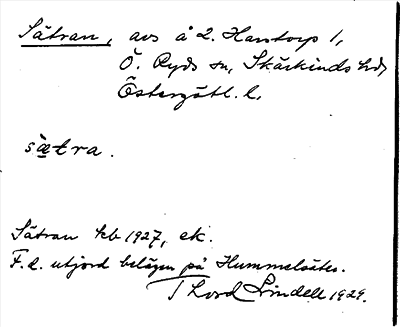 Sätran, avs å 2. Harstorp 1,
Ö. Ryds sn, Skärkinds hd,
Östergötl. l.
sætra.
Sätran kb 1927, ek.
F.d. utjord belägen på Hummelsäter.
Thord Lindell 1929.